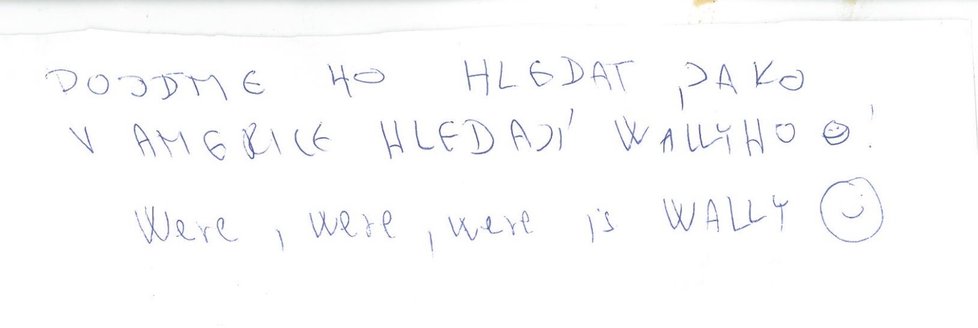 DOJDME HO HLEDAT , JAKO
V AMERICE HLEDAJÍ WALLYHO ☺!
Were , were , were is WALLY ☺